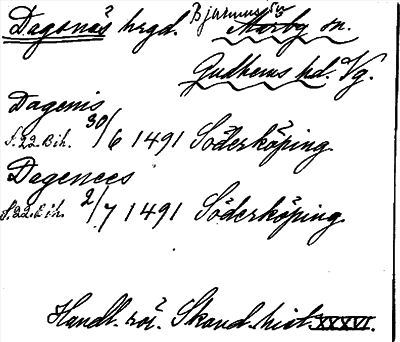 Dagsnäs hrgd. Bjärmums by Marby sn.
Gudhems hd. Vg.
Dagenis
S. 22 Bih. 30/6 1491 Söderköping
Dagenees
S. 22 Bih. 2/7 1491 Söderköping
Handl. rör. Skand. hist. XXXVI.